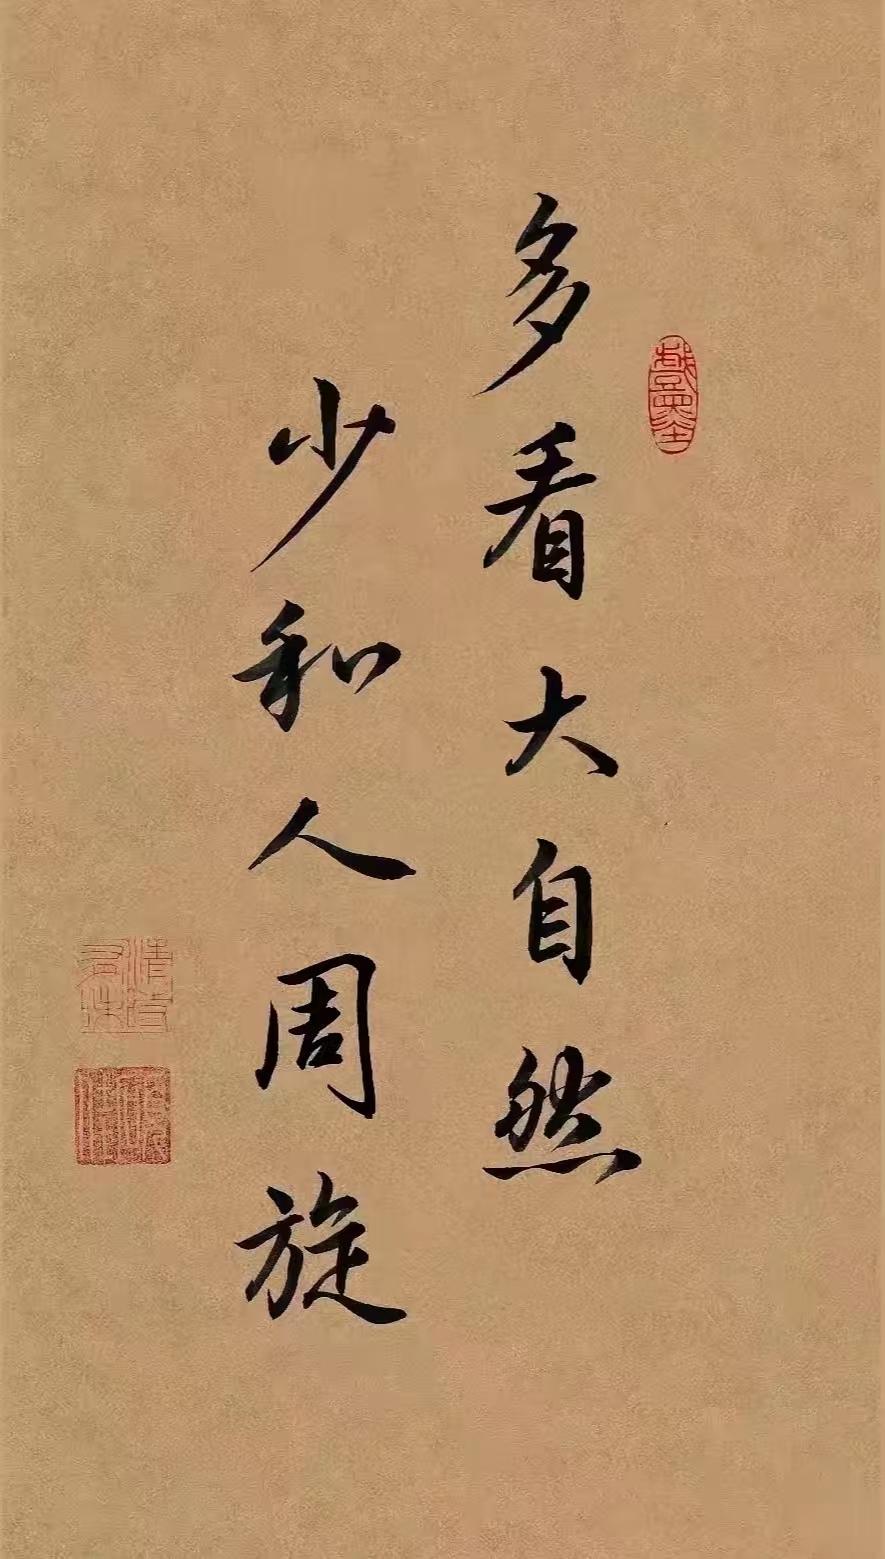 多看大自然
少和人周旋